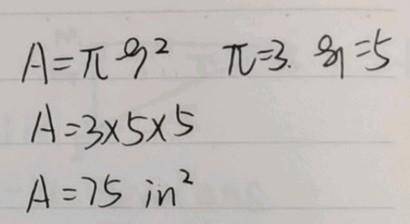 A=πr² π=3. r=5
A=3×5×5
A=75 in²